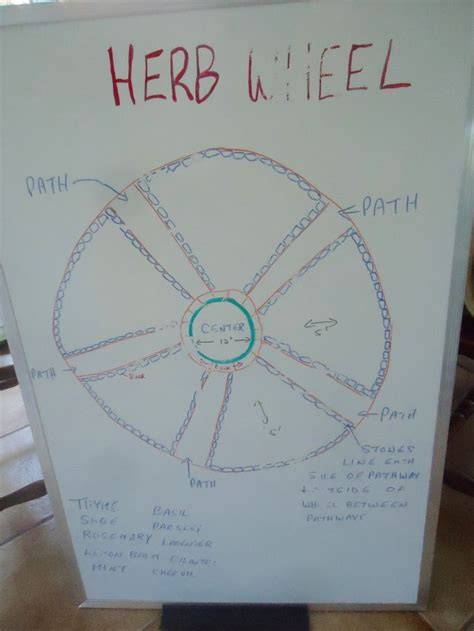 HERB WHEEL
PATH
PATH
CENTER
12'
5'
PATH
PATH
5'
PATH
STONES
LINE EACH
SIDE OF PATHWAY
OF
BETWEEN
PATHWAYS
THYME BASIL
PARSLEY
ROSEMARY LAVENDER
LEMON BALM CILANTRO
MINT CHERVIL